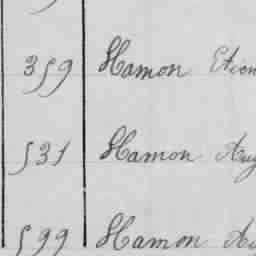 359 Hamon Etien
531 Hamon Aug
599 Hamon Au